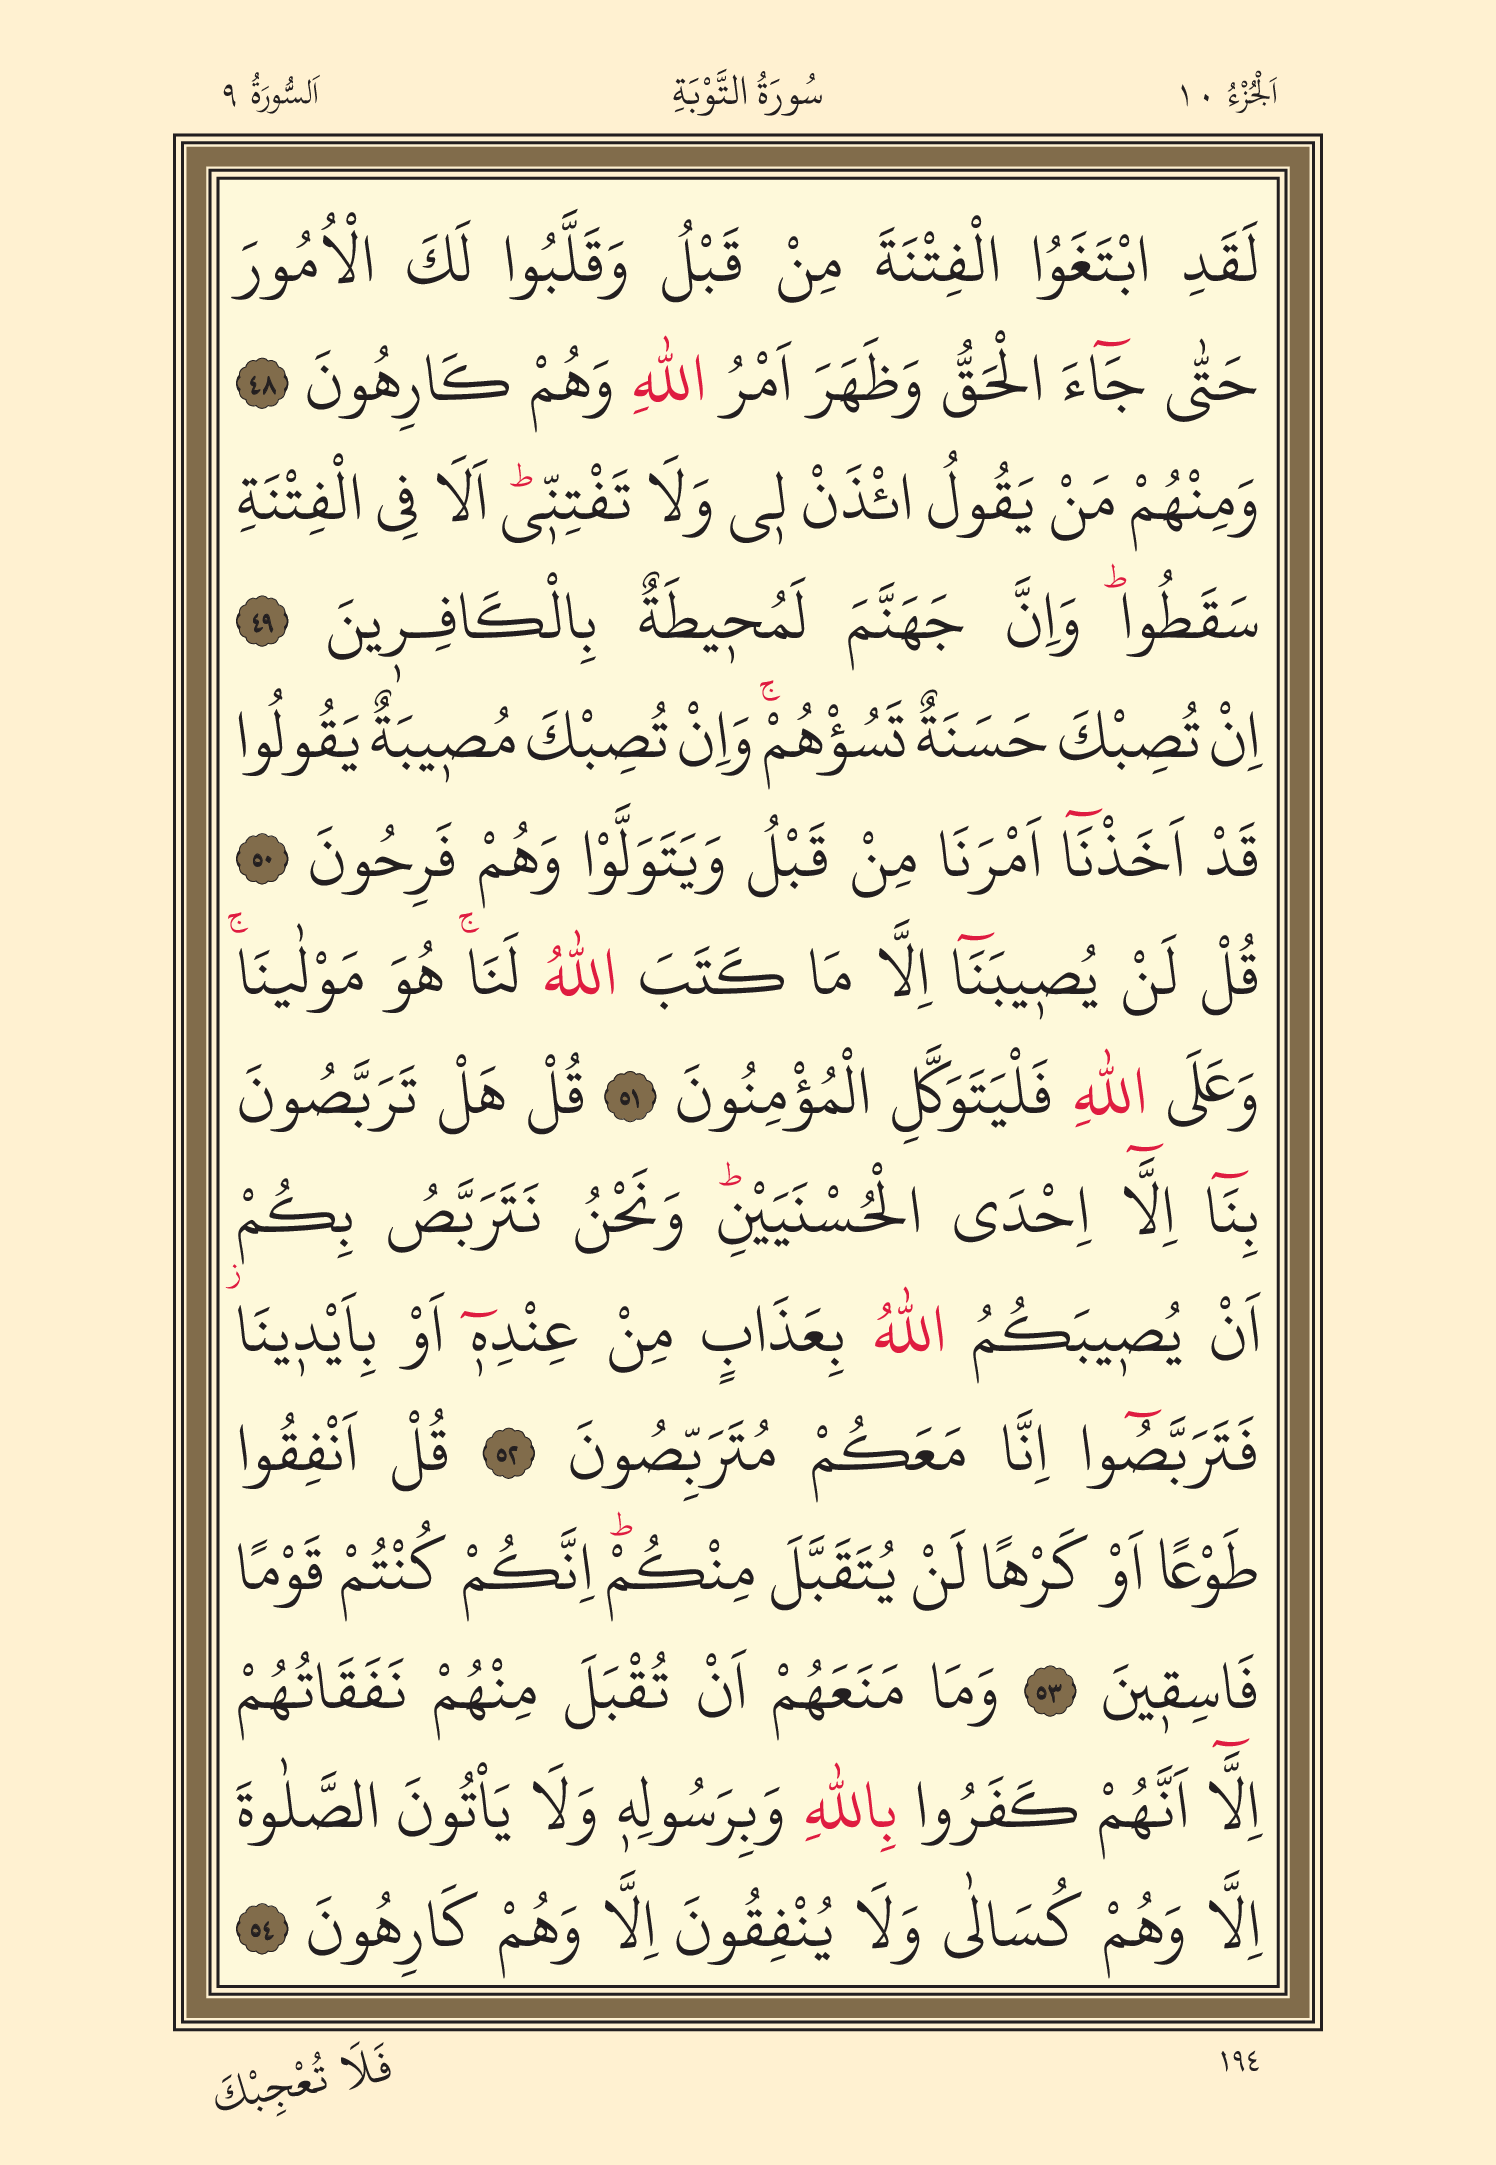 اَلْجُزْءُ ١٠ سُورَةُ التَّوْبَةِ اَلسُّورَةُ ٩
لَقَدِ ابْتَغَوُا الْفِتْنَةَ مِنْ قَبْلُ وَقَلَّبُوا لَكَ الْاُمُورَ
حَتّٰى جَٓاءَ الْحَقُّ وَظَهَرَ اَمْرُ اللّٰهِ وَهُمْ كَارِهُونَ ٤٨
وَمِنْهُمْ مَنْ يَقُولُ ائْذَنْ لٖى وَلَا تَفْتِنّٖىؕ اَلَا فِى الْفِتْنَةِ
سَقَطُواؕ وَاِنَّ جَهَنَّمَ لَمُحٖيطَةٌ بِالْكَافِرٖينَ ٤٩
اِنْ تُصِبْكَ حَسَنَةٌ تَسُؤْهُمْۚ وَاِنْ تُصِبْكَ مُصٖيبَةٌ يَقُولُوا
قَدْ اَخَذْنَٓا اَمْرَنَا مِنْ قَبْلُ وَيَتَوَلَّوْا وَهُمْ فَرِحُونَ ٥٠
قُلْ لَنْ يُصٖيبَنَٓا اِلَّا مَا كَتَبَ اللّٰهُ لَنَاۚ هُوَ مَوْلٰينَاۚ
وَعَلَى اللّٰهِ فَلْيَتَوَكَّلِ الْمُؤْمِنُونَ ٥١ قُلْ هَلْ تَرَبَّصُونَ
بِنَٓا اِلَّٓا اِحْدَى الْحُسْنَيَيْنِؕ وَنَحْنُ نَتَرَبَّصُ بِكُمْ
اَنْ يُصٖيبَكُمُ اللّٰهُ بِعَذَابٍ مِنْ عِنْدِهٖٓ اَوْ بِاَيْدٖينَاؗ
فَتَرَبَّصُٓوا اِنَّا مَعَكُمْ مُتَرَبِّصُونَ ٥٢ قُلْ اَنْفِقُوا
طَوْعًا اَوْ كَرْهًا لَنْ يُتَقَبَّلَ مِنْكُمْؕ اِنَّكُمْ كُنْتُمْ قَوْمًا
فَاسِقٖينَ ٥٣ وَمَا مَنَعَهُمْ اَنْ تُقْبَلَ مِنْهُمْ نَفَقَاتُهُمْ
اِلَّٓا اَنَّهُمْ كَفَرُوا بِاللّٰهِ وَبِرَسُولِهٖ وَلَا يَاْتُونَ الصَّلٰوةَ
اِلَّا وَهُمْ كُسَالٰى وَلَا يُنْفِقُونَ اِلَّا وَهُمْ كَارِهُونَ ٥٤
١٩٤ فَلَا تُعْجِبْكَ